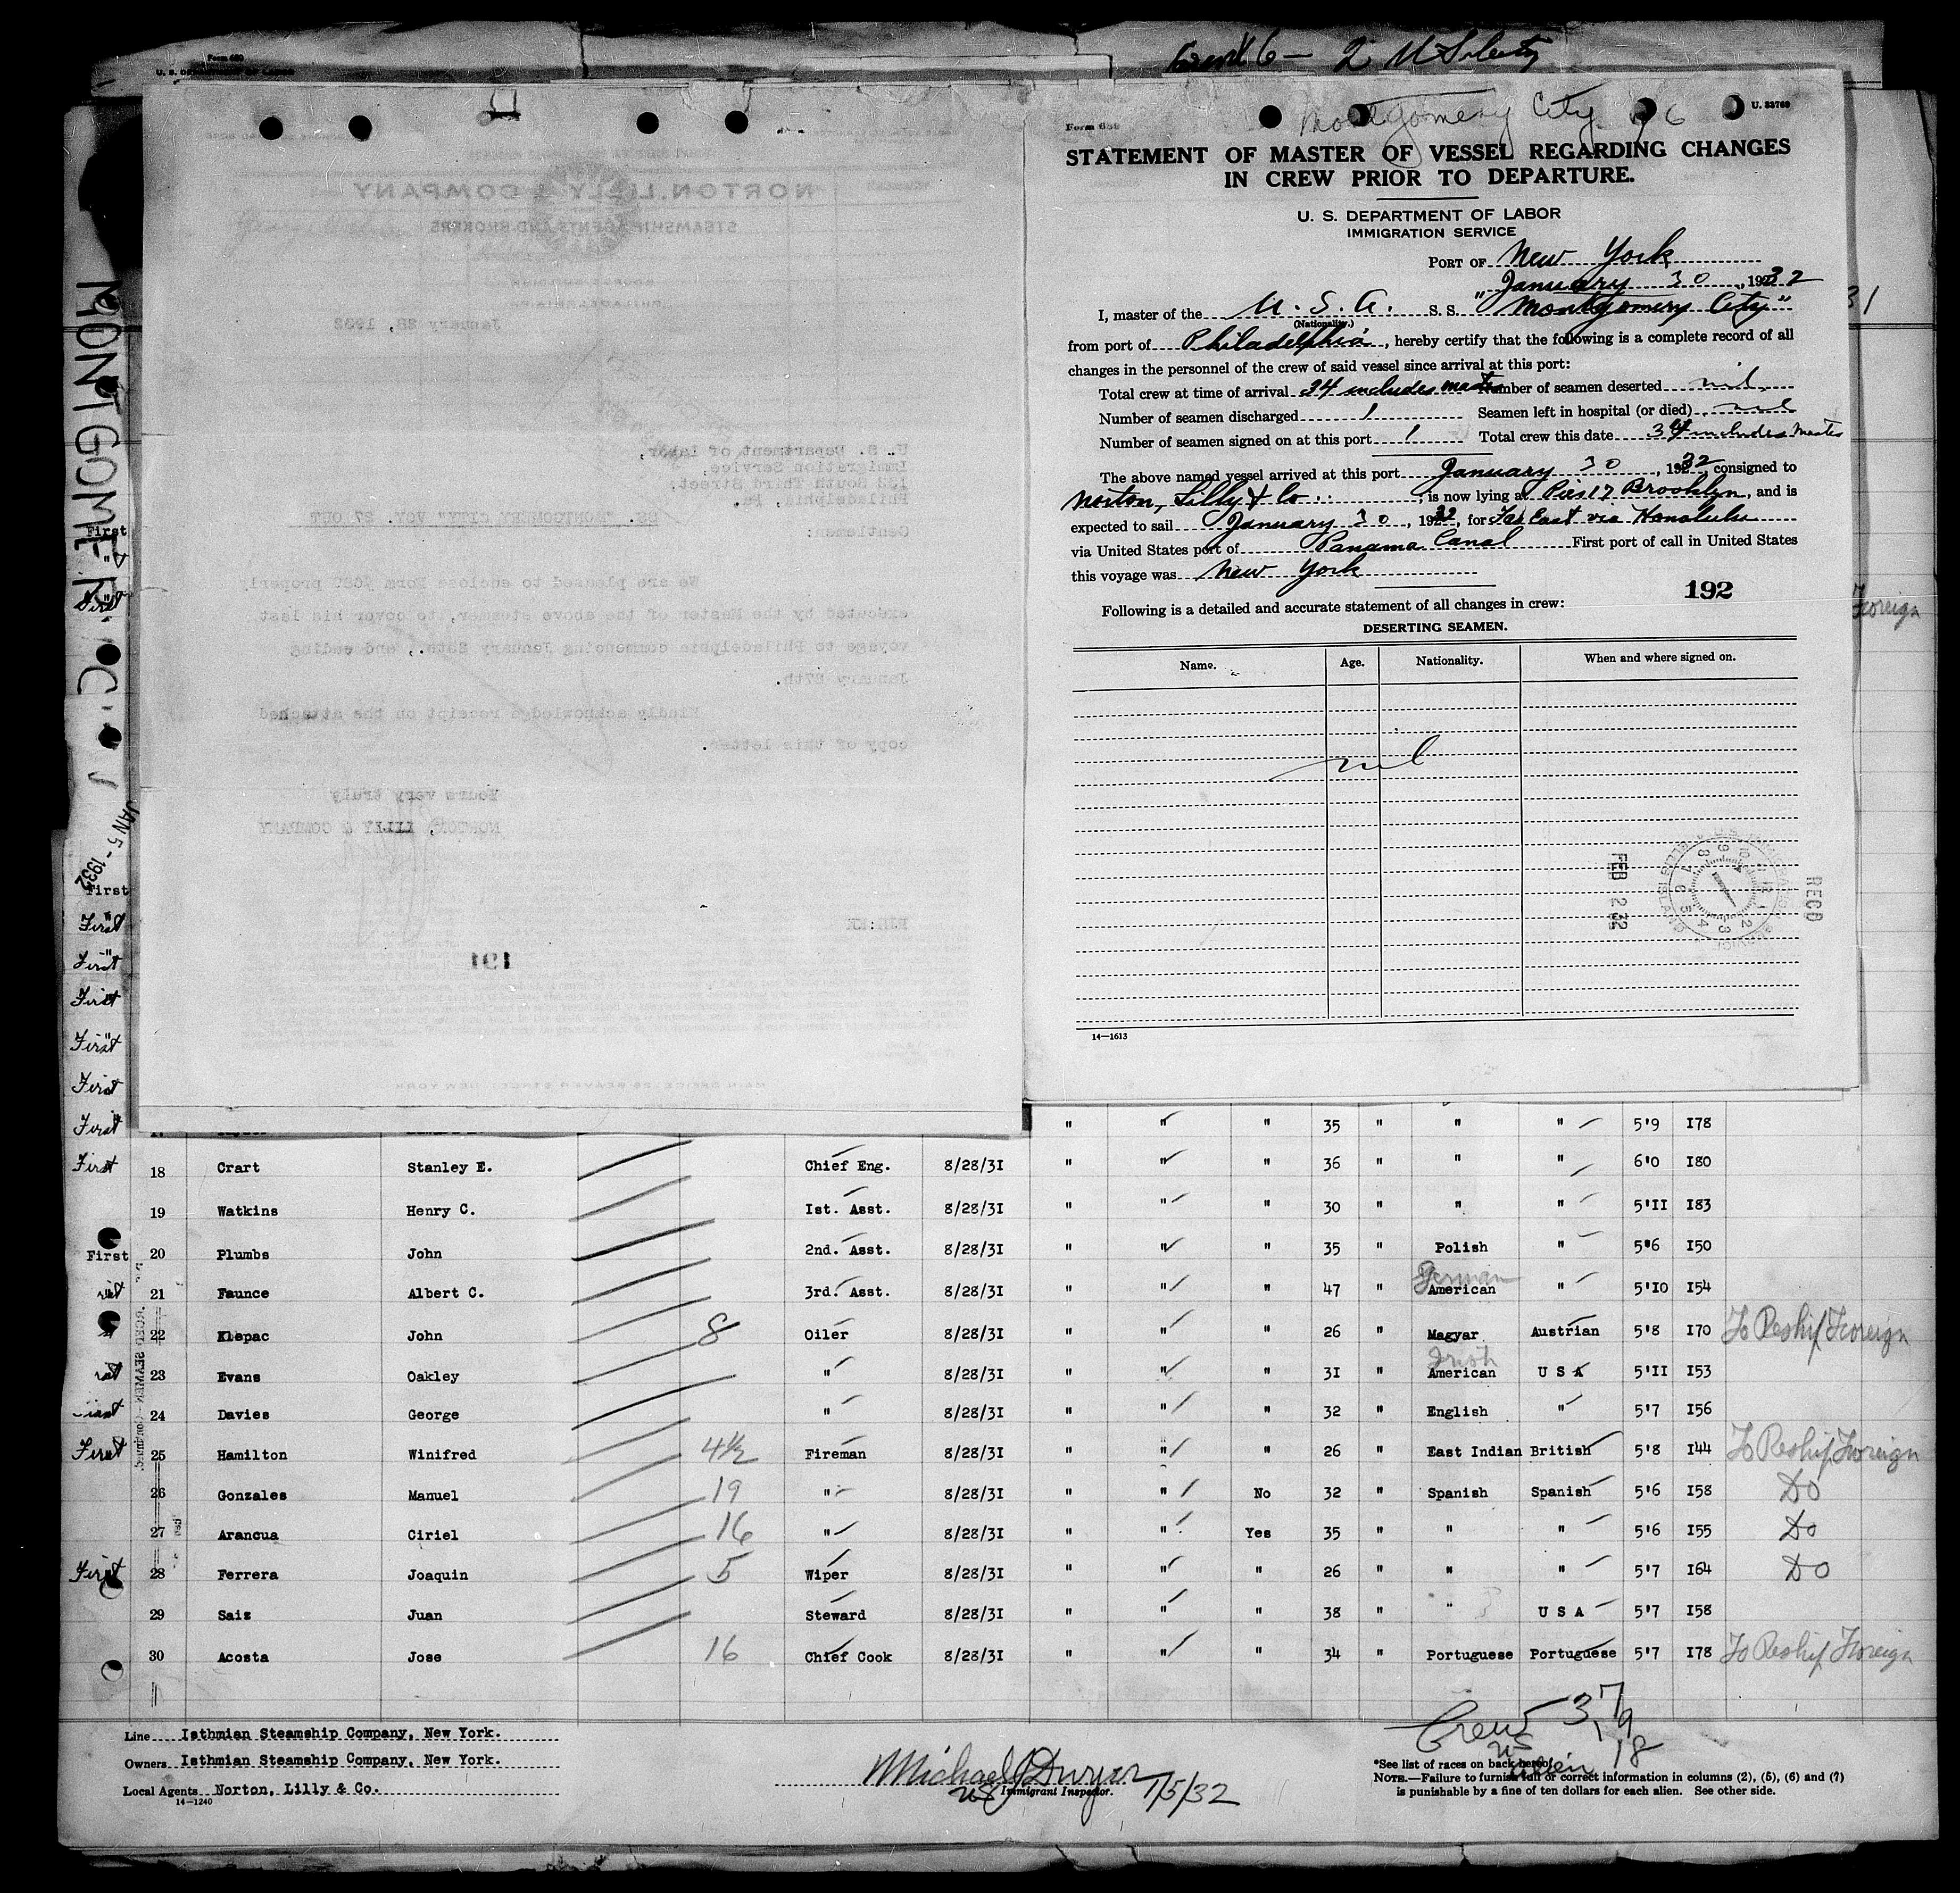 Form 680
U. S. DEPARTMENT OF LABOR
Montgomery City
Form 689
U. 33769
STATEMENT OF MASTER OF VESSEL REGARDING CHANGES
IN CREW PRIOR TO DEPARTURE.
U. S. DEPARTMENT OF LABOR
IMMIGRATION SERVICE
PORT OF New York
January 30, 1932
I, master of the U. S. A. S. S. "Montgomery City"
(Nationality.)
from port of Philadelphia, hereby certify that the following is a complete record of all
changes in the personnel of the crew of said vessel since arrival at this port:
Total crew at time of arrival 34 includes master Number of seamen deserted nil
Number of seamen discharged 1 Seamen left in hospital (or died) nil
Number of seamen signed on at this port 1 Total crew this date 34 includes Master
The above named vessel arrived at this port January 30, 1932, consigned to
Norton, Lilly & Co., is now lying at Pier 17 Brooklyn, and is
expected to sail January 30, 1932, for Far East via Honolulu
via United States port of Panama Canal First port of call in United States
this voyage was New York
192
Following is a detailed and accurate statement of all changes in crew:
DESERTING SEAMEN.
Name. Age. Nationality. When and where signed on.
nil
RECD
FEB 2 32
14—1613
NORTON, LILLY & COMPANY
STEAMSHIP AGENTS AND BROKERS
January 28, 1932
U. S. Department of Labor,
Immigration Service,
Philadelphia, Pa.
SS. "MONTGOMERY CITY" VOY. 27 OUT
Gentlemen:
We are pleased to enclose Form #689 properly
executed by the Master of the above steamer, to cover his last
voyage to Philadelphia commencing January 25th., and ending
January 27th.
Kindly acknowledge receipt on the attached
copy of this letter.
Yours very truly
NORTON, LILLY & COMPANY
191
JAN 5 - 1932
Foreign
First
First
First
First
First
First
First
First
" " " 35 " " " 5'9 178
First 18 Crart Stanley E. Chief Eng. 8/28/31 " " " 36 " " " 6'0 180
19 Watkins Henry C. 1st. Asst. 8/28/31 " " " 30 " " " 5'11 183
First 20 Plumbs John 2nd. Asst. 8/28/31 " " " 35 " Polish " 5'6 150
German
21 Faunce Albert C. 3rd. Asst. 8/28/31 " " " 47 " American " 5'10 154
22 Klepac John 8 Oiler 8/28/31 " " " 26 " Magyar Austrian 5'8 170 To Reship Foreign
Irish
23 Evans Oakley " 8/28/31 " " " 31 " American U S A 5'11 153
24 Davies George " 8/28/31 " " " 32 " English " 5'7 156
First 25 Hamilton Winifred 4½ Fireman 8/28/31 " " " 26 " East Indian British 5'8 144 To Reship Foreign
26 Gonzales Manuel 19 " 8/28/31 " " No 32 " Spanish Spanish 5'6 158 Do
27 Arancua Ciriel 16 " 8/28/31 " " Yes 35 " " " 5'6 155 Do
First 28 Ferrera Joaquin 5 Wiper 8/28/31 " " " 26 " " " 5'7 164 Do
29 Saiz Juan Steward 8/28/31 " " " 38 " " U S A 5'7 158
30 Acosta Jose 16 Chief Cook 8/28/31 " " " 34 " Portuguese Portuguese 5'7 178 To Reship Foreign
Line Isthmian Steamship Company, New York.
Owners Isthmian Steamship Company, New York.
Local Agents Norton, Lilly & Co.
14—1240
Immigrant Inspector.
1/5/32
Crew 37
US 19
Alien 18
*See list of races on back hereof.
NOTE.—Failure to furnish full or correct information in columns (2), (5), (6) and (7)
is punishable by a fine of ten dollars for each alien. See other side.